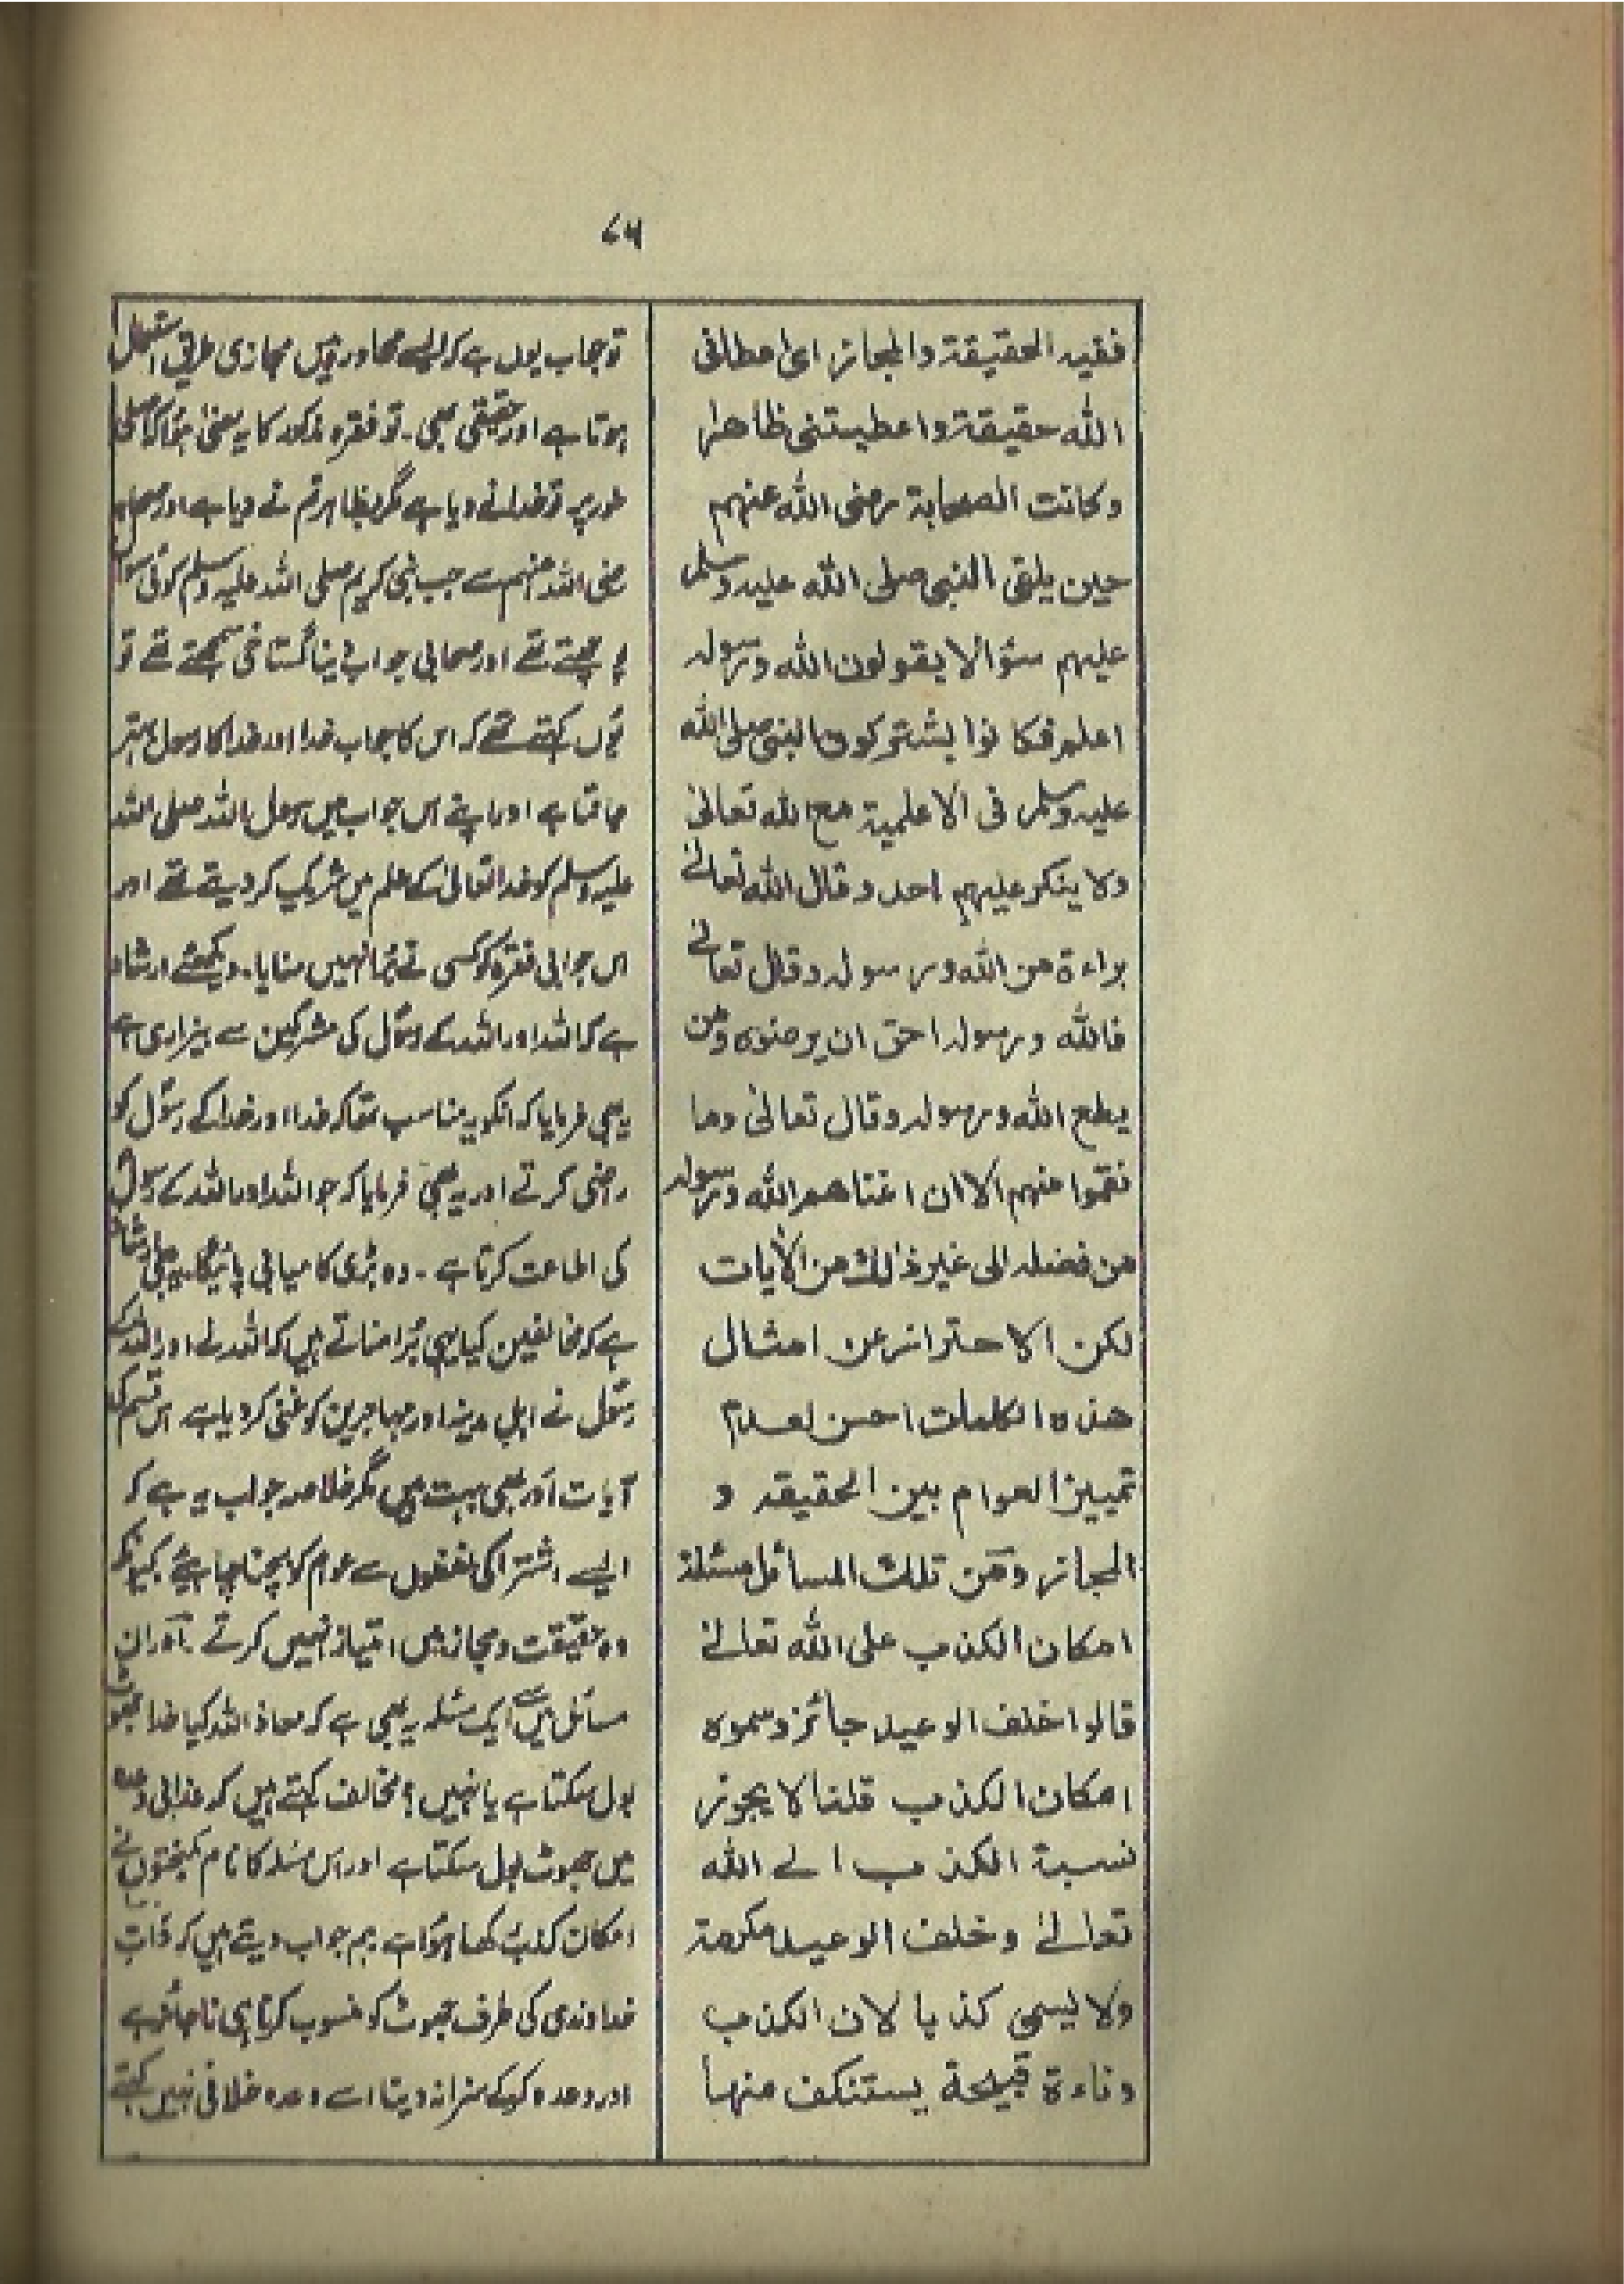 ۷۶
فقيه الحقيقة والمجاز اى اعطانى
الله حقيقة واعطيتنى ظاهرا
وكانت الصحابة رضى الله عنهم
حين يلقى النبى صلى الله عليه وسلم
عليهم سؤالا يقولون الله ورسوله
اعلم فكانوا يشتركون النبى صلى الله
عليه وسلم فى الاعلمية مع الله تعالى
ولا ينكر عليهم احد وقال الله تعالى
براءة من الله ورسوله وقال تعالى
فالله ورسوله احق ان يرضوه ومن
يطع الله ورسوله وقال تعالى وما
نقموا منهم الا ان اغناهم الله ورسوله
من فضله الى غير ذالك من الأيات
لكن الاحتراز عن امثال
هذه الكلمات احسن لعدم
تمييز العوام بين الحقيقه و
المجاز ومن تلك المسائل مسئلة
امكان الكذب على الله تعالى
قالوا خلف الوعيد جائز وسموه
امكان الكذب قلنا لا يجوز
نسبة الكذب الے الله
تعالےٰ وخلف الوعيد مكرمة
ولا ليسمى كذبا لان الكذب
دناءة قبيحة يستنكف منها
تو جواب یوں ہے کہ ایسے محاورہ میں مجازی طریق استعمال
ہوتا ہے اور حقیقی بھی۔ تو فقرہ مذکور کا یہ معنیٰ ہوا کہ اصلی
طور پر تو خدا نے دیا ہے مگر بظاہر تم نے دیا ہے اور صحابہ
رضی اللہ عنہم سے جب نبی کریم صلی اللہ علیہ وسلم کوئی سوال
پوچھتے تھے اور صحابی جواب دینا گستاخی سمجھتے تھے تو
یوں کہتے تھے کہ اس کا جواب خدا اور خدا کا رسول بہتر
جانتا ہے اور اپنے اس جواب میں رسول اللہ صلی اللہ
علیہ وسلم کو خدا تعالیٰ کے علم میں شریک کر دیتے تھے اور
اس جوابی فقرہ کو کسی نے بُرا نہیں منایا۔ دیکھئے ارشاد
ہے کہ اللہ اور اللہ کے رسول کی مشرکین سے بیزاری ہے
یہ بھی فرمایا کہ انکو یہ مناسب تھا کہ خدا اور خدا کے رسول کو
راضی کرتے اور یہ بھی فرمایا کہ جو اللہ اور اللہ کے رسول
کی اطاعت کرتا ہے۔ وہ بڑی کامیابی پائیگا۔ یہ بھی ارشاد
ہے کہ مخالفین کیا یہی بُرا مناتے ہیں کہ اللہ نے اور اللہ کے
رسول نے اہل مدینہ اور مہاجرین کو غنی کر دیا ہے اس قسم کی
آیات اور بھی بہت ہیں مگر خلاصہ جواب یہ ہے کہ
ایسے اشتراکی لفظوں سے عوام کو بچنا چاہیئے کیونکہ
وہ حقیقت و مجاز میں امتیاز نہیں کرتے۔ اور ان
مسائل میں سے ایک مسئلہ یہ بھی ہے کہ معاذ اللہ کیا خدا جھوٹ
بول سکتا ہے یا نہیں؟ مخالف کہتے ہیں کہ خدائی وعدہ
میں جھوٹ بول سکتا ہے اور اس مسئلہ کا نام کمبختوں نے
امکان کذب رکھا ہوا ہے ہم جواب دیتے ہیں کہ ذات
خداوندی کی طرف جھوٹ کو منسوب کرنا ہی ناجائز ہے
اور وعدہ کرکے سزا نہ دینا اسے وعدہ خلافی نہیں کہتے